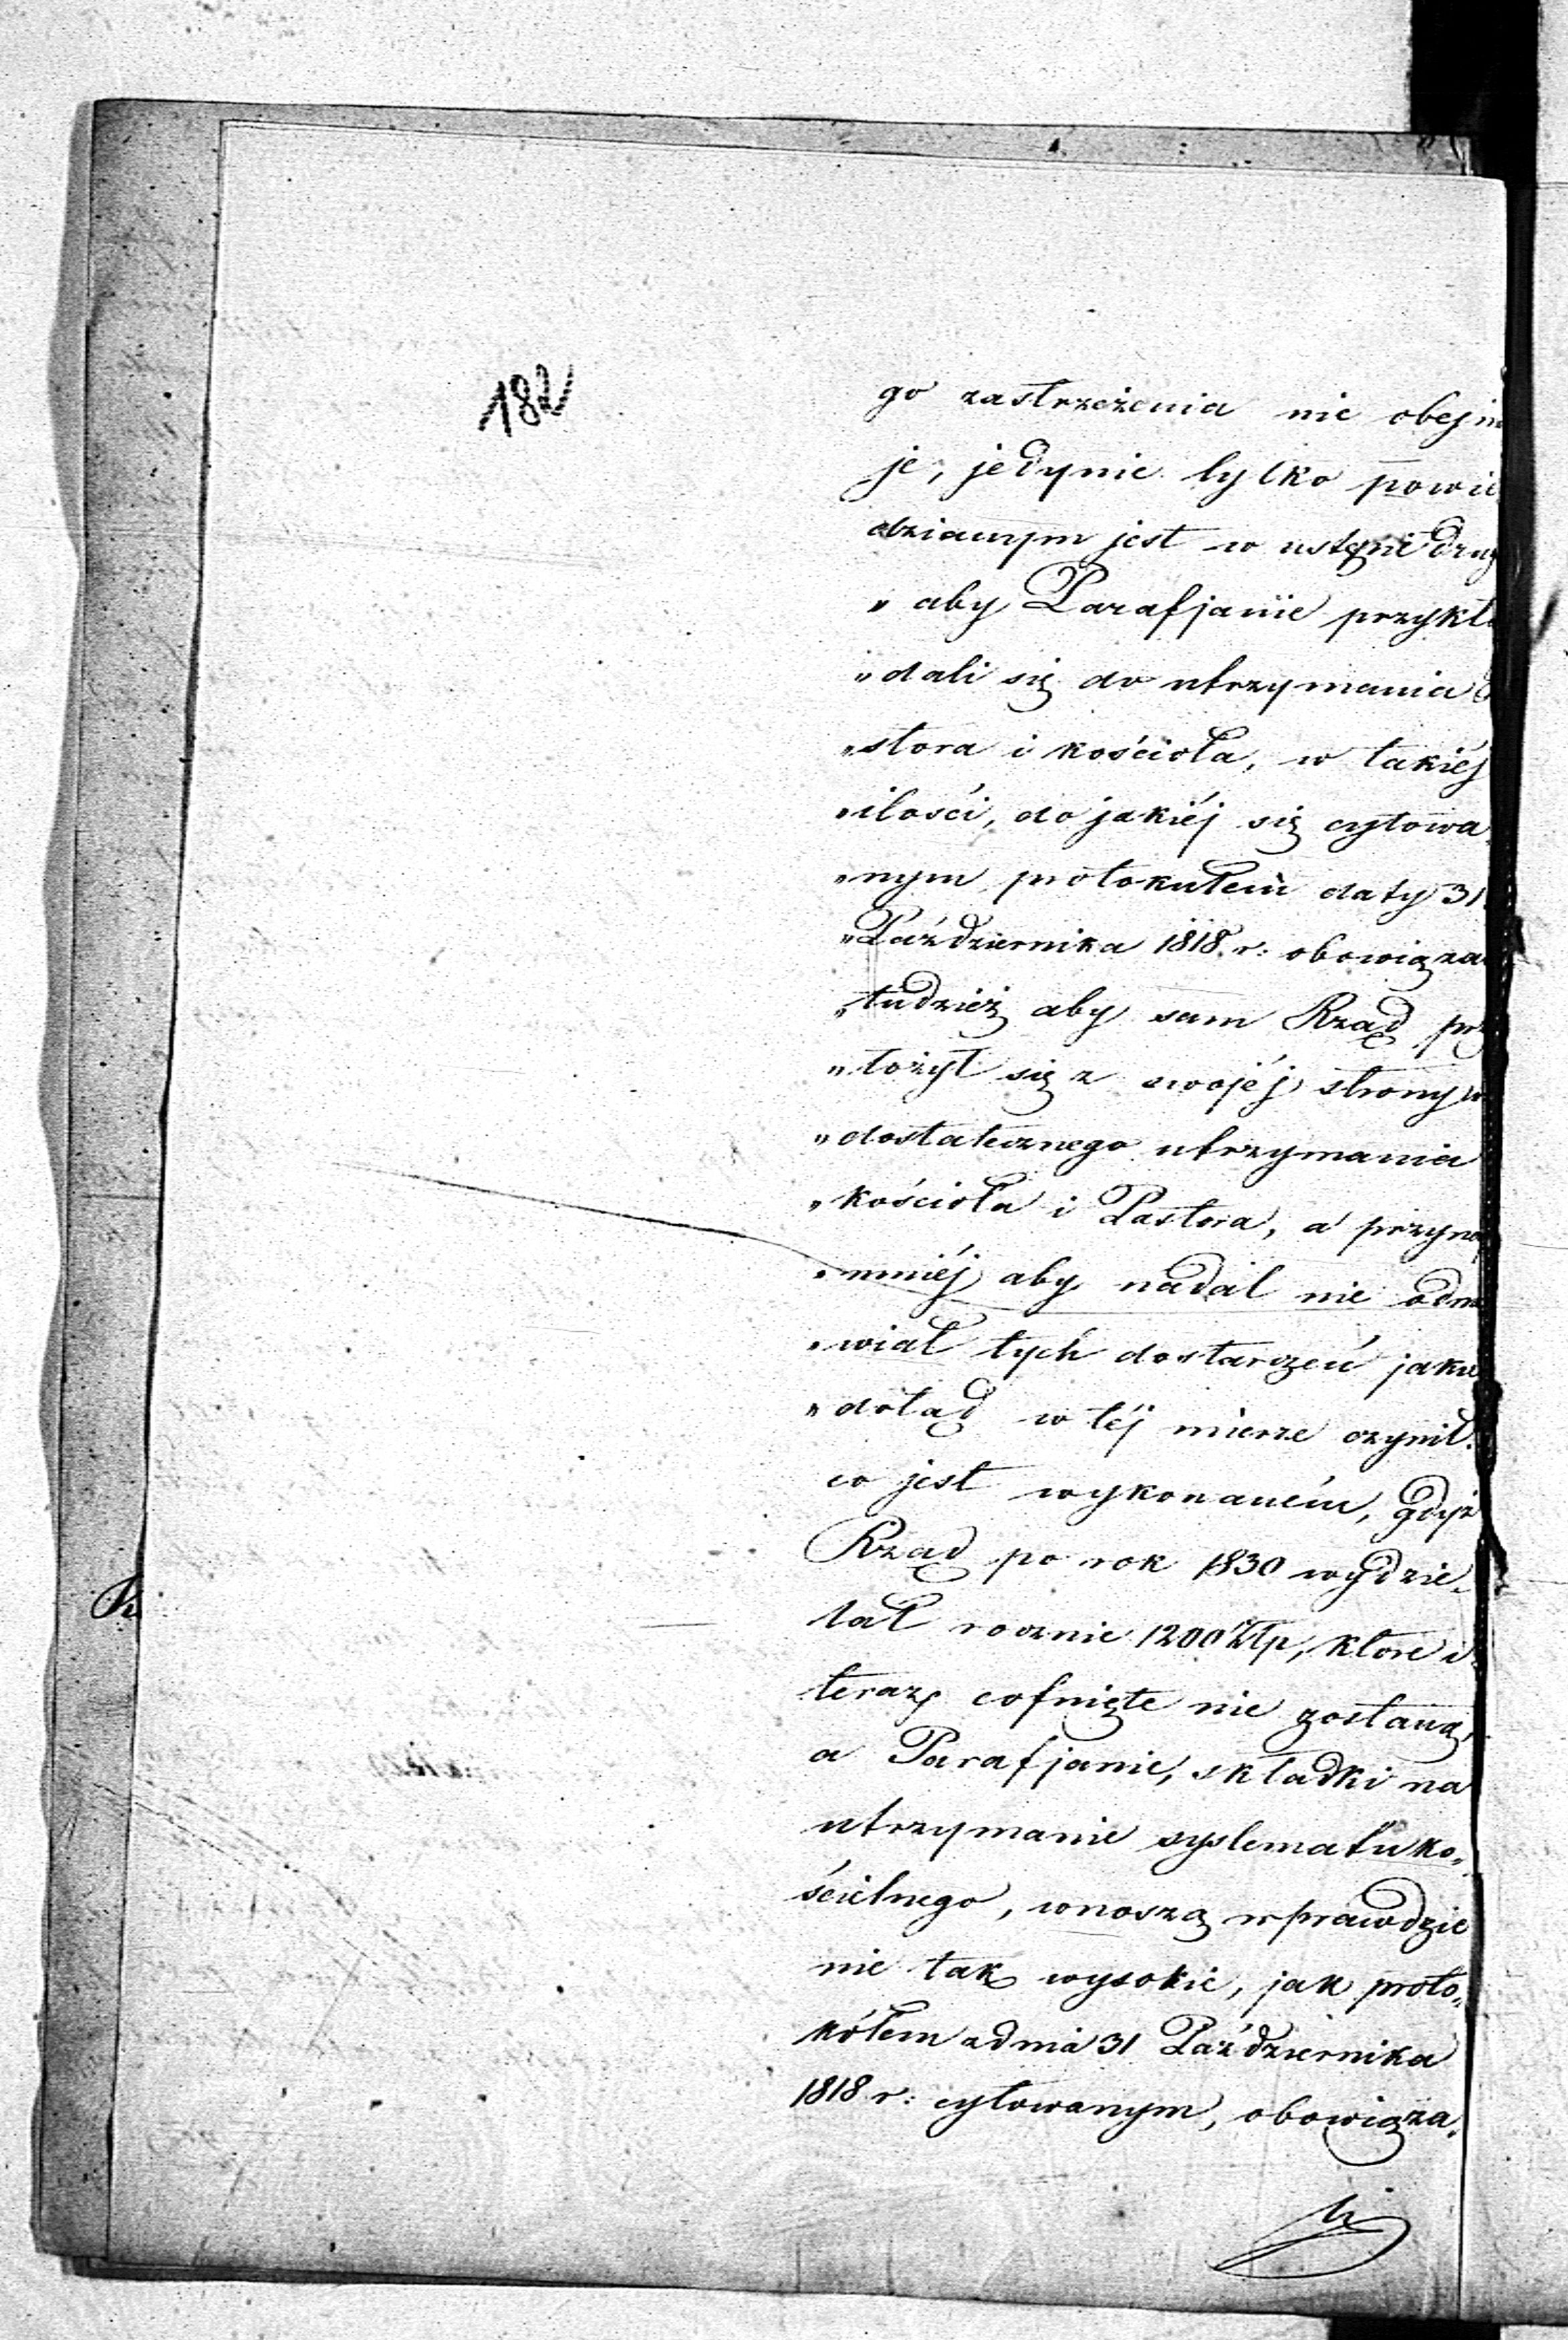 182
go zastrzeżenia nie obejm
je, jedynie tylko powie
dzianym jest w ustępie drug
„ aby Parafjanie przykła
„ dali się do utrzymania
„ stora i kościoła, w takiéj
„ ilości, do jakiéj się cytowa„
„ nym protokułem daty 31
„ Października 1818 r: obowiąza
„ tudzież aby sam Rząd prz
„ łożył się z swojéj strony
„ dostatecznego utrzymania
„ kościoła i Pastora, a przynaj
„ mniéj aby nadal nie odm
„ wiał tych dostarczeń jakie
„ dotąd w téj mierze czynił.
co jest wykonaném, gdyż
Rząd po rok 1830 wydzie„
lał rocznie 1200 Złp, które i
teraz cofnięte nie zostaną,
a Parafjanie, składki na
utrzymanie systematu ko„
ścielnego, wnoszą wprawdzie
nie tak wysokie, jak proto„
kółem z dnia 31 Października
1818 r: cytowanym, obowiąza„